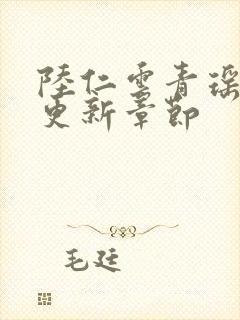 陸仁雲青瑶
更新章節
毛廷